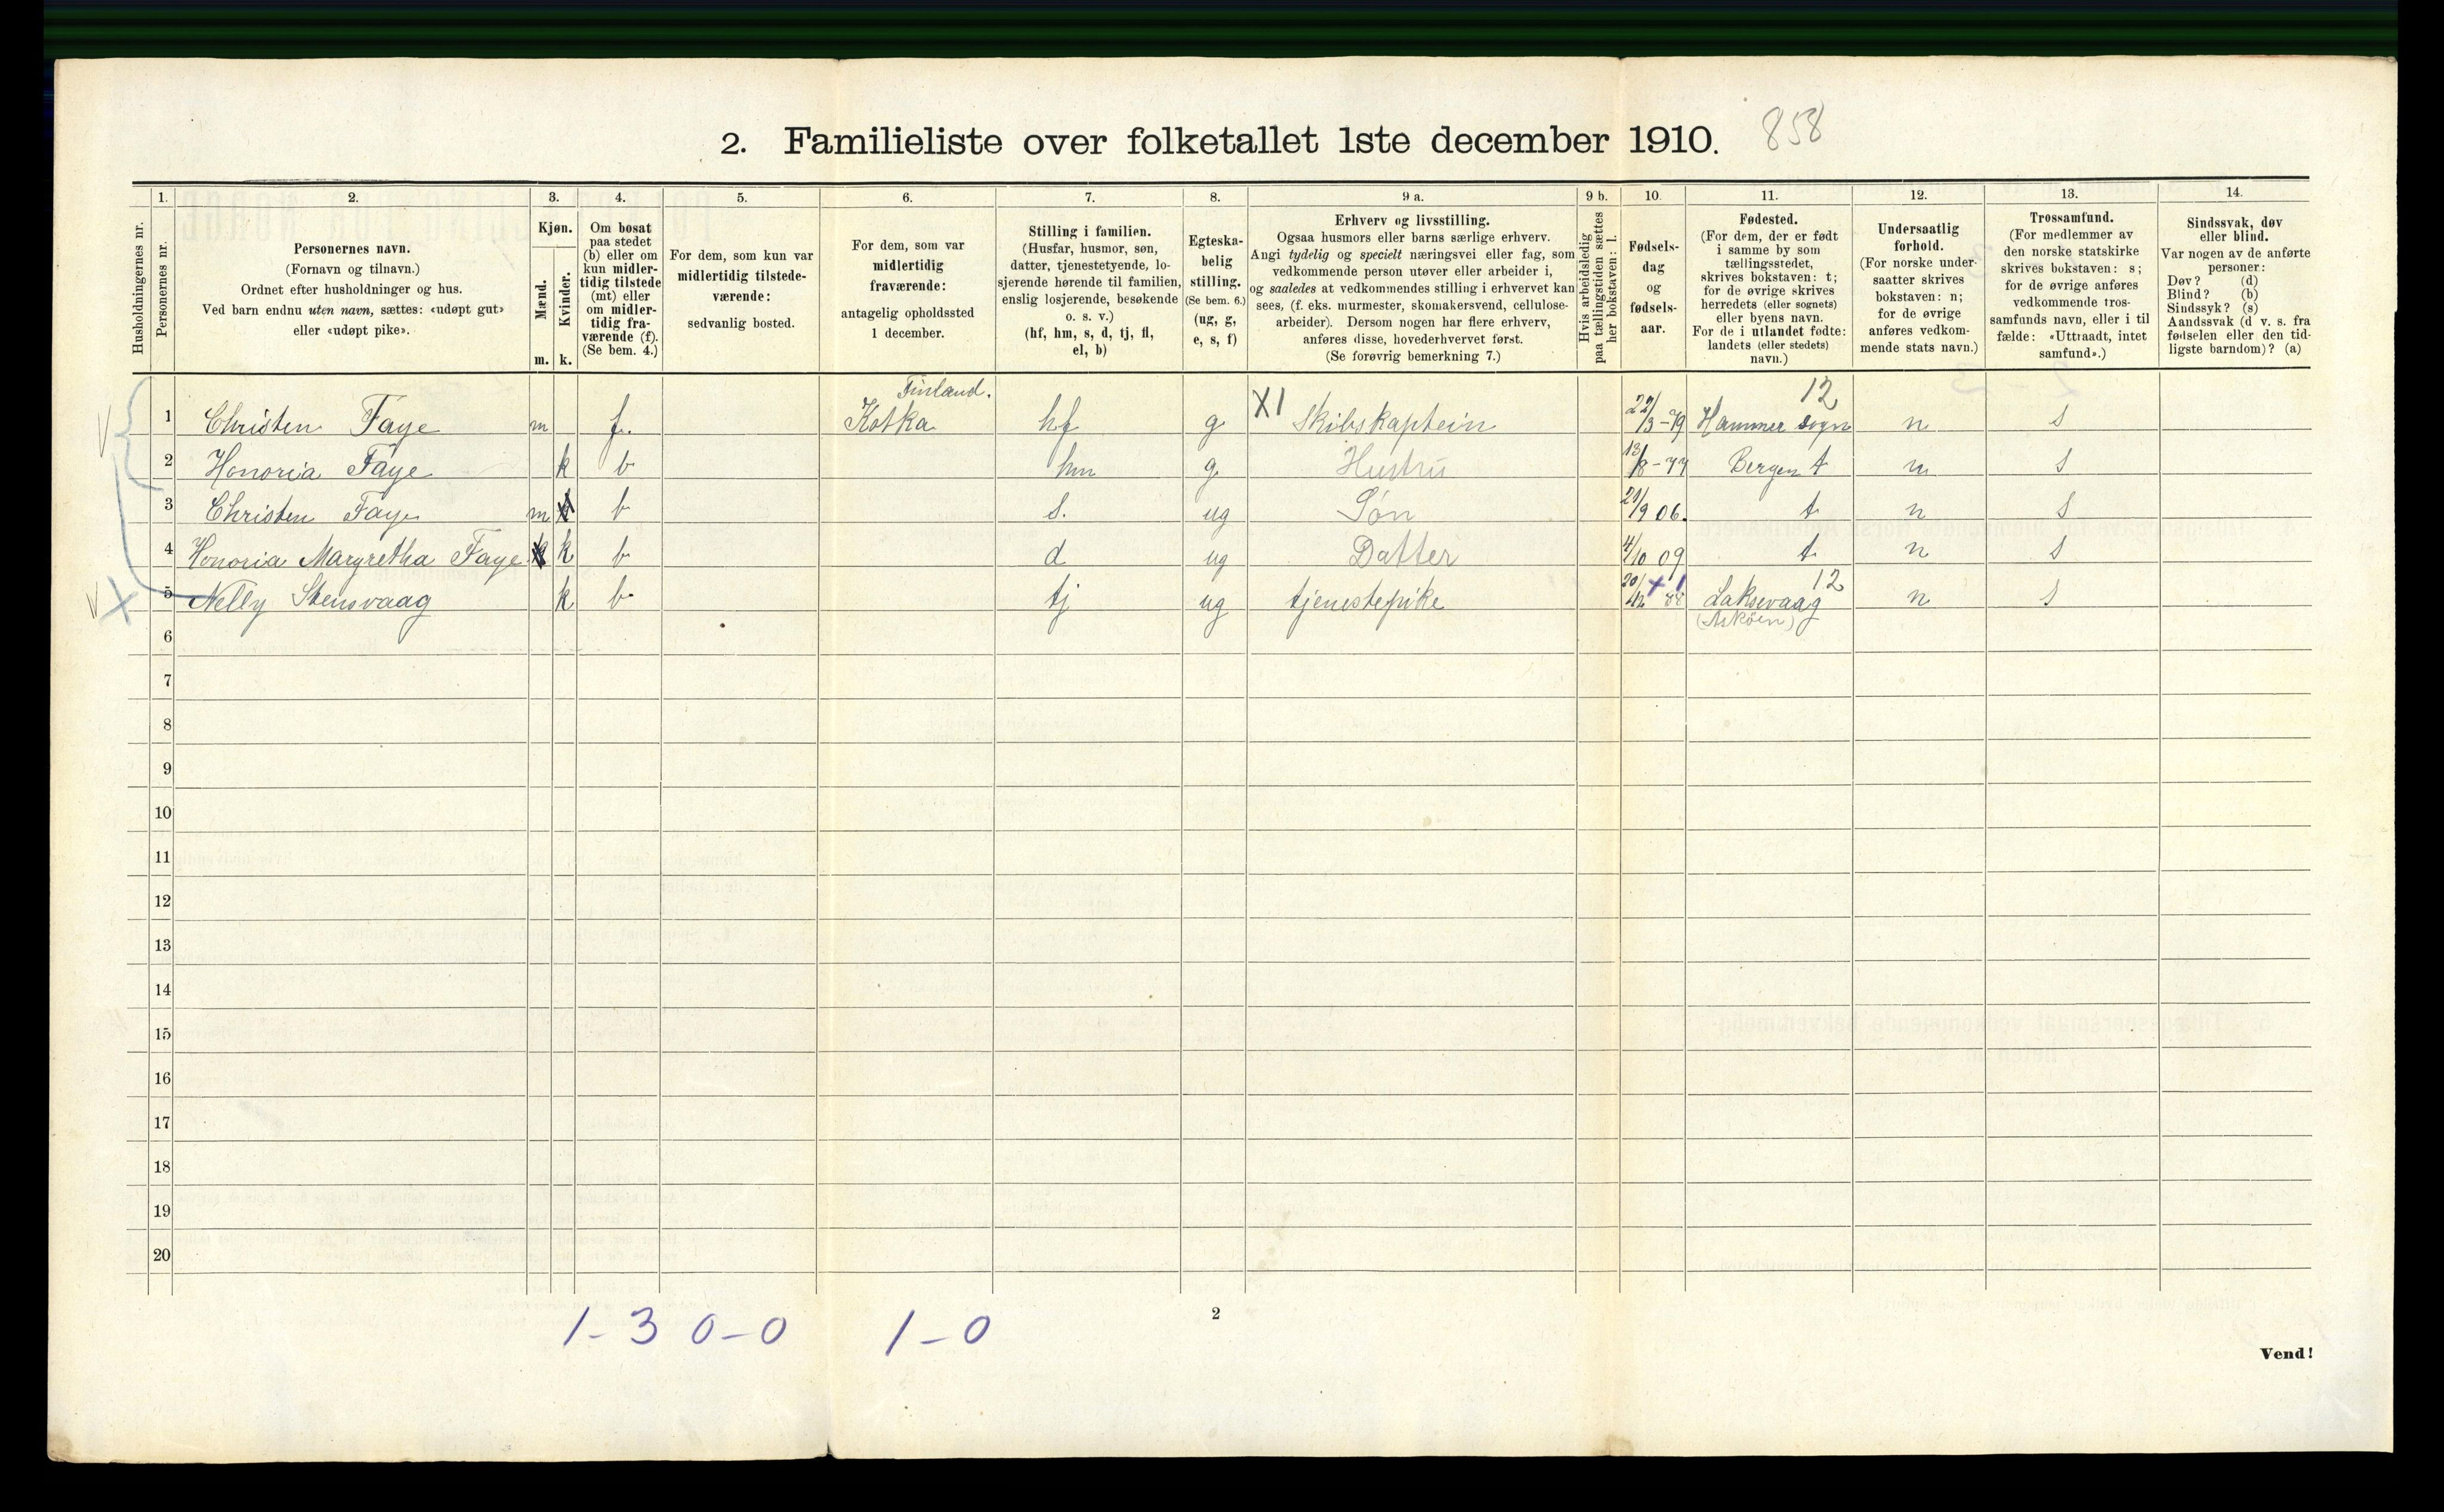 2. Familieliste over folketallet 1ste december 1910. 858
1. 2. 3. 4. 5. 6. 7. 8. 9 a. 9 b. 10. 11. 12. 13. 14.
Husholdningernes nr.
Personernes nr.
Personernes navn.
(Fornavn og tilnavn.)
Ordnet efter husholdninger og hus.
Ved barn endnu uten navn, sættes: «udøpt gut»
eller «udøpt pike».
Kjøn.
Mænd.
m.
Kvinder.
k.
Om bosat
paa stedet
(b) eller om
kun midler-
tidig tilstede
(mt) eller
om midler-
tidig fra-
værende (f).
(Se bem. 4.)
For dem, som kun var
midlertidig tilstede-
værende:
sedvanlig bosted.
For dem, som var
midlertidig
fraværende:
antagelig opholdssted
1 december.
Stilling i familien.
(Husfar, husmor, søn,
datter, tjenestetyende, lo-
sjerende hørende til familien,
enslig losjerende, besøkende
o. s. v.)
(hf, hm, s, d, tj, fl,
el, b)
Egteska-
belig
stilling.
(Se bem. 6.)
(ug, g,
e, s, f)
Erhverv og livsstilling.
Ogsaa husmors eller barns særlige erhverv.
Angi tydelig og specielt næringsvei eller fag, som
vedkommende person utøver eller arbeider i,
og saaledes at vedkommendes stilling i erhvervet kan
sees, (f. eks. murmester, skomakersvend, cellulose-
arbeider). Dersom nogen har flere erhverv,
anføres disse, hovederhvervet først.
(Se forøvrig bemerkning 7.)
Hvis arbeidsledig
paa tællingstiden sættes
her bokstaven: l.
Fødsels-
dag
og
fødsels-
aar.
Fødested.
(For dem, der er født
i samme by som
tællingsstedet,
skrives bokstaven: t;
for de øvrige skrives
herredets (eller sognets)
eller byens navn.
For de i utlandet fødte:
landets (eller stedets)
navn.)
Undersaatlig
forhold.
(For norske under-
saatter skrives
bokstaven: n;
for de øvrige
anføres vedkom-
mende stats navn.)
Trossamfund.
(For medlemmer av
den norske statskirke
skrives bokstaven: s;
for de øvrige anføres
vedkommende tros-
samfunds navn, eller i til
fælde: «Uttraadt, intet
samfund».)
Sindssvak, døv
eller blind.
Var nogen av de anførte
personer:
Døv? (d)
Blind? (b)
Sindssyk? (s)
Aandssvak (d v. s. fra
fødselen eller den tid-
ligste barndom)? (a)
Finland. 12
1 Christen Faye m f. Kotka hf g X1 Skibskaptein 22/3-79 Hammer sogn n s
2 Honoria Faye k b hm g Hustru 13/8-77 Bergen t n s
3 Christen Faye m b s. ug Søn 21/9 06. t n s
4 Honoria Margretha Faye k b d ug Datter 4/10 09 t n s
12
5 Nelly Stensvaag k b tj ug tjenestepike 20/12 88 Laksevaag n s
(Askøen)
6
7
8
9
10
11
12
13
14
15
16
17
18
19
20
1-3 0-0 1-0
2
Vend!